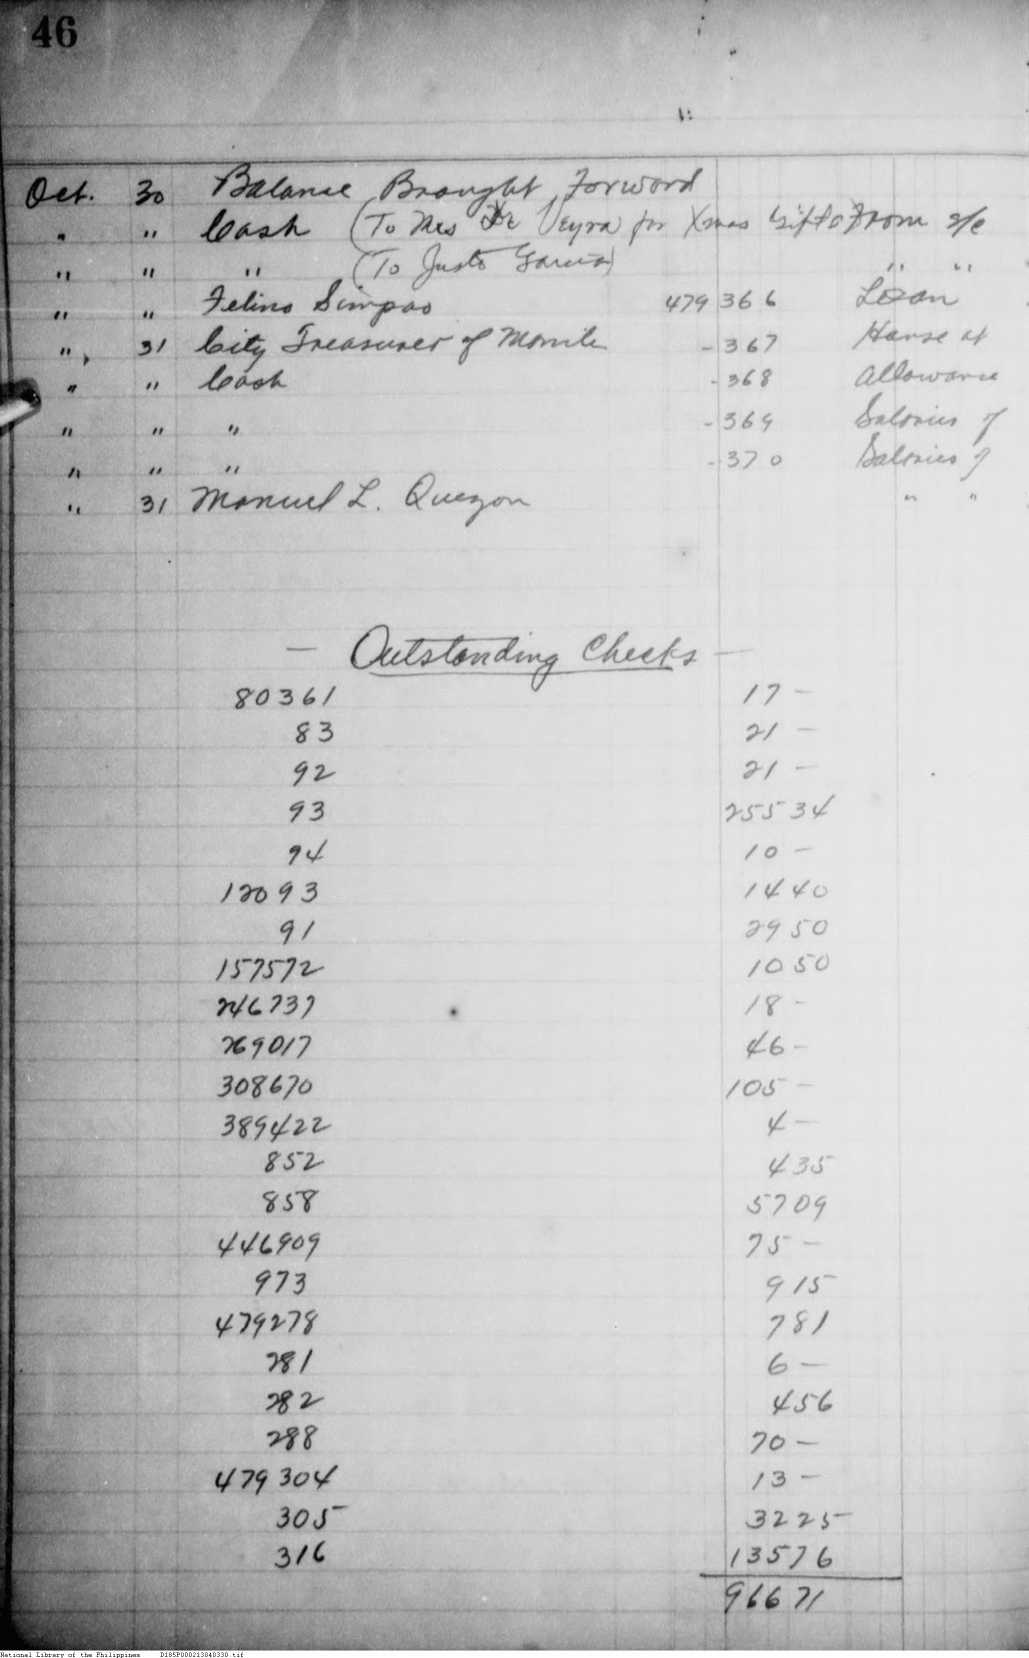 46
Oct. 30 Balance Brought Forword
" " Cash (To Mrs De Veyra for Xmas Gift a/ From a/c
" " " (To Justo Garcia) " "
" " Felino Simpao 479 366 Loan
" 31 City Treasurer of Manila - 367 House at
" " Cash - 368 Allowance
" " " - 369 Salaries of
" " " - 370 Salaries of
" 31 Manuel L. Quezon " "
— Outstanding Checks —
80361 17 —
83 21 —
92 21 —
93 255 34
94 10 —
12093 14 40
91 29 50
157572 10 50
246737 18 -
269017 46 -
308670 105 —
389422 4 —
852 4 35
858 57 09
446909 75 —
973 9 15
479278 7 81
281 6 —
282 4 56
288 70 —
479304 13 —
305 32 25
316 135 76
966 71
National Library of the Philippines D185P000213840330.tif